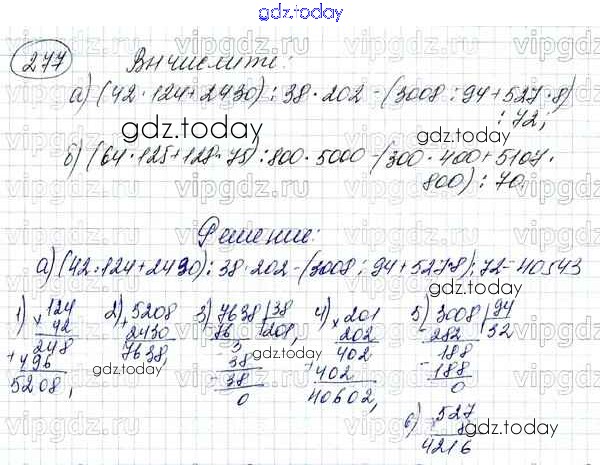 gdz.today
277
Вычислите:
а) (42·124+2430):38·202-(3008:94+527·8)
:72;
gdz.today
б) (64·125+128·75):800·5000-(300·400+5107·
800):70.
Решение:
а) (42·124+2430):38·202-(3008:94+527·8):72=40543
1) 124 2) 5208 3) 7638 38 4) 201 5) 3008 94
× 42 + 2430 76 201, × 202 - 282 32
248 7638, 3 402 188
+ 496 - 38 + 402 - 188
5208, - 38 40602, 0
0
6) 527
8
4216
gdz.today
gdz.today
gdz.today
gdz.today
vipgdz.ru